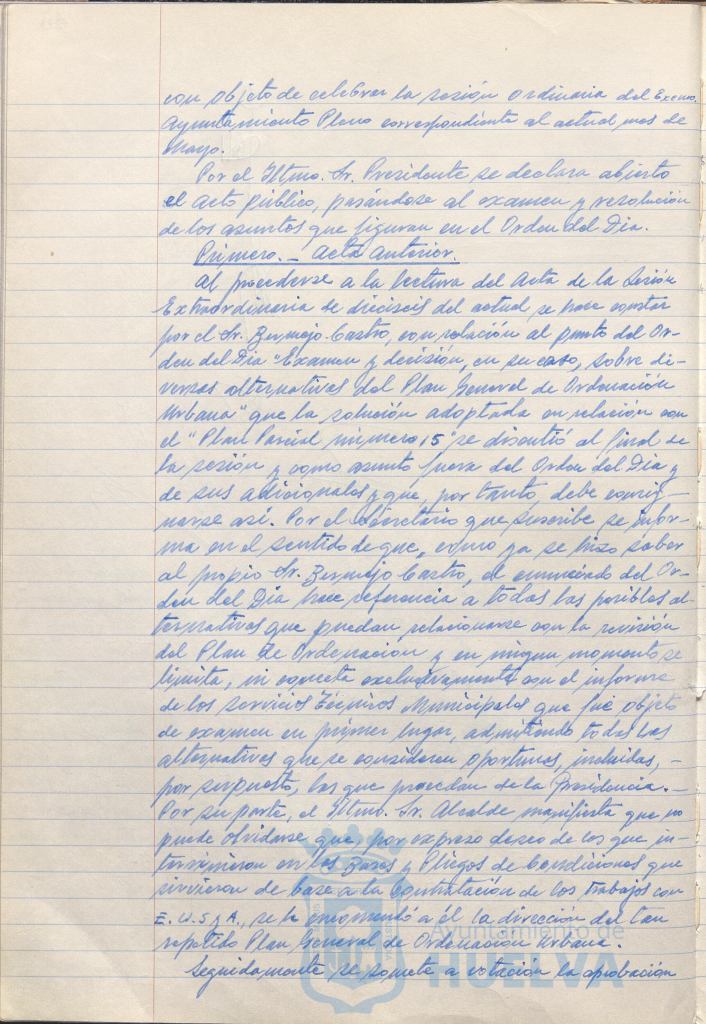 con objeto de celebrar la sesión ordinaria del Excmo.
Ayuntamiento Pleno correspondiente al actual mes de
Mayo.
Por el Iltmo. Sr. Presidente se declara abierto
el acto público, pasándose al examen y resolución
de los asuntos que figuran en el Orden del Dia.
Primero.- Acta anterior.
Al procederse a la lectura del Acta de la Sesión
Extraordinaria de dieciseis del actual se hace constar
por el Sr. Bermejo Castro, con relación al punto del Or-
den del Dia "Examen y decisión, en su caso, sobre di-
versas alternativas del Plan General de Ordenación
Urbana" que la solución adoptada en relación con
el "Plan Parcial número 15" se discutió al final de
la sesión y como asunto fuera del Orden del Dia y
de sus adicionales y que, por tanto, debe consig-
narse así. Por el Secretario que suscribe se infor-
ma en el sentido de que, como ya se hizo saber
al propio Sr. Bermejo Castro, el enunciado del Or-
den del Dia hace referencia a todas las posibles al-
ternativas que puedan relacionarse con la revisión
del Plan de Ordenación y en ningun momento se
limita, ni conecta exclusivamente con el informe
de los Servicios Técnicos Municipales que fué objeto
de examen en primer lugar, admitiendo todas las
alternativas que se consideren oportunas, incluidas,-
por supuesto, las que procedan de la Presidencia.-
Por su parte, el Iltmo. Sr. Alcalde manifiesta que no
puede olvidarse que, por expreso deseo de los que in-
tervinieron en las Bases y Pliegos de Condiciones que
sirvieron de base a la contratación de los trabajos con
E.U.S.y A., se le encomendó a él la dirección del tan
repetido Plan General de Ordenación Urbana.
Seguidamente se somete a votación la aprobación
Ayuntamiento de
HUELVA